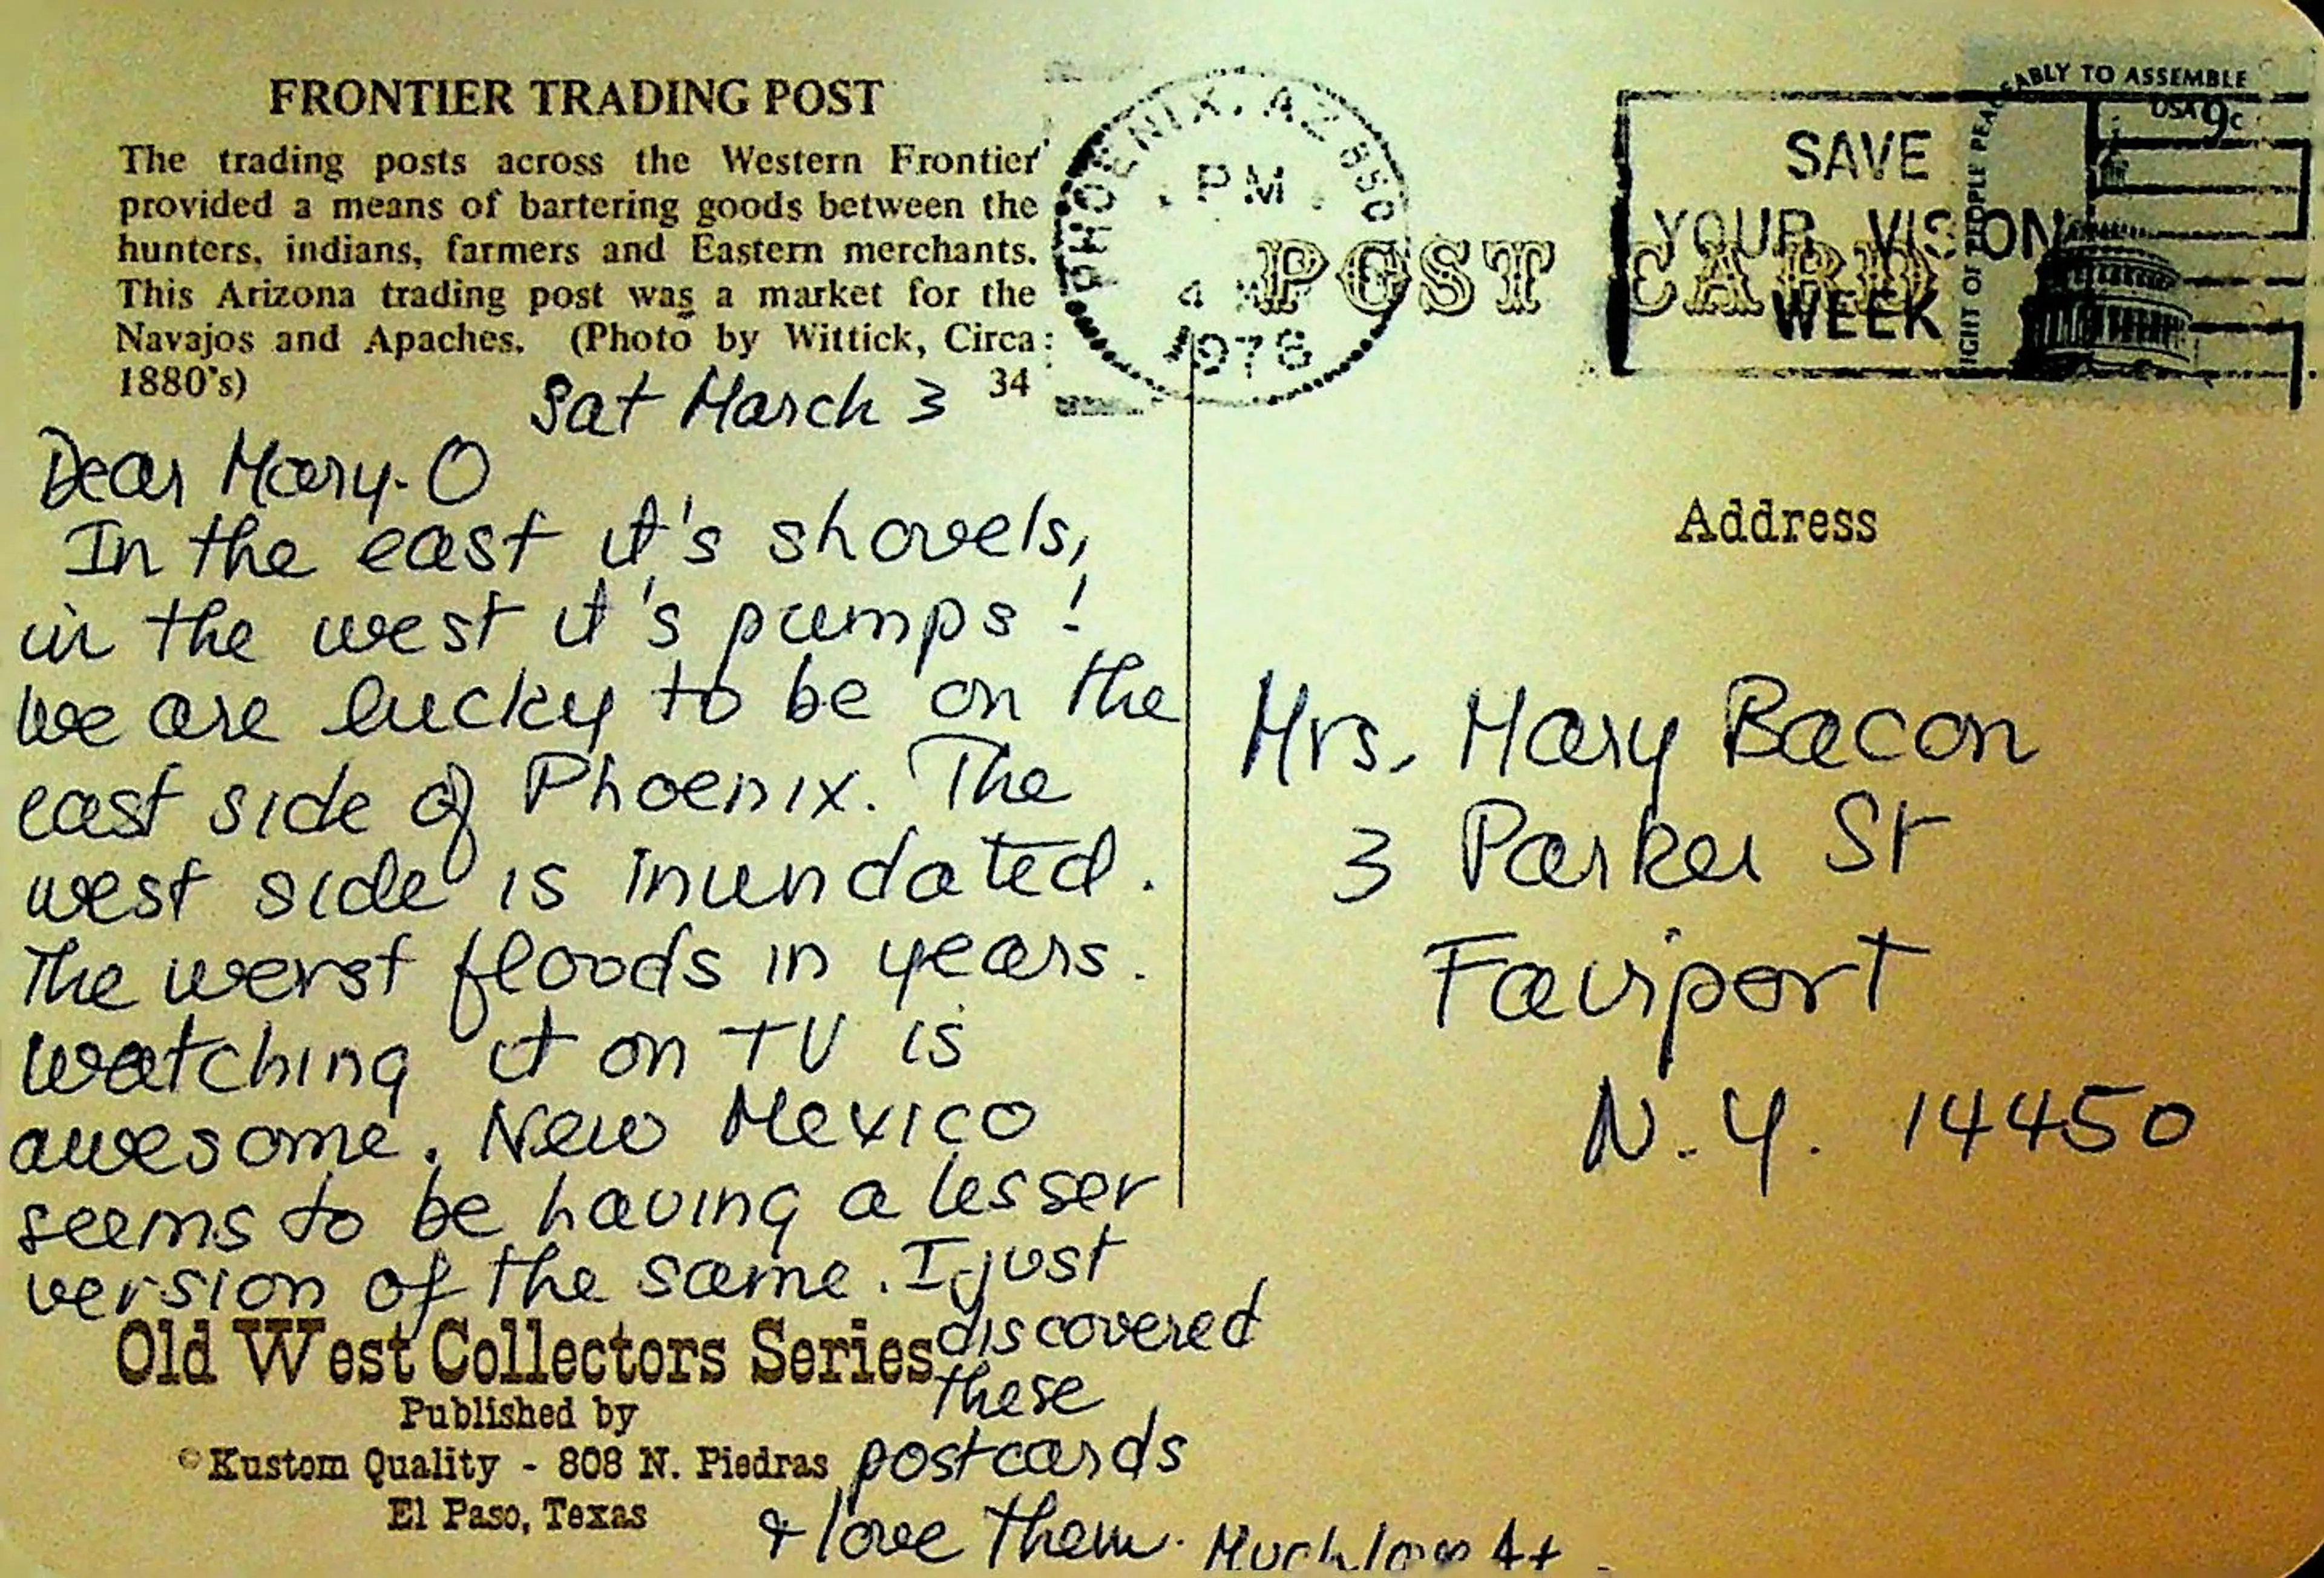 FRONTIER TRADING POST
The trading posts across the Western Frontier
provided a means of bartering goods between the
hunters, indians, farmers and Eastern merchants.
This Arizona trading post was a market for the
Navajos and Apaches. (Photo by Wittick, Circa
1880's) 34
Sat March 3
Dear Mary-O
In the east it's shovels,
in the west it's pumps!
We are lucky to be on the
east side of Phoenix. The
west side is inundated.
The worst floods in years.
Watching it on TV is
awesome. New Mexico
seems to be having a lesser
version of the same. I just
discovered
these
postcards
& love them. Much love
Old West Collectors Series
Published by
© Kustom Quality - 808 N. Piedras
El Paso, Texas
PHOENIX, AZ 850
PM
4
1978
POST CARD
SAVE
YOUR VISION
WEEK
RIGHT OF PEOPLE PEACEABLY TO ASSEMBLE
USA 9c
Address
Mrs. Mary Bacon
3 Parker St
Fairport
N.Y. 14450